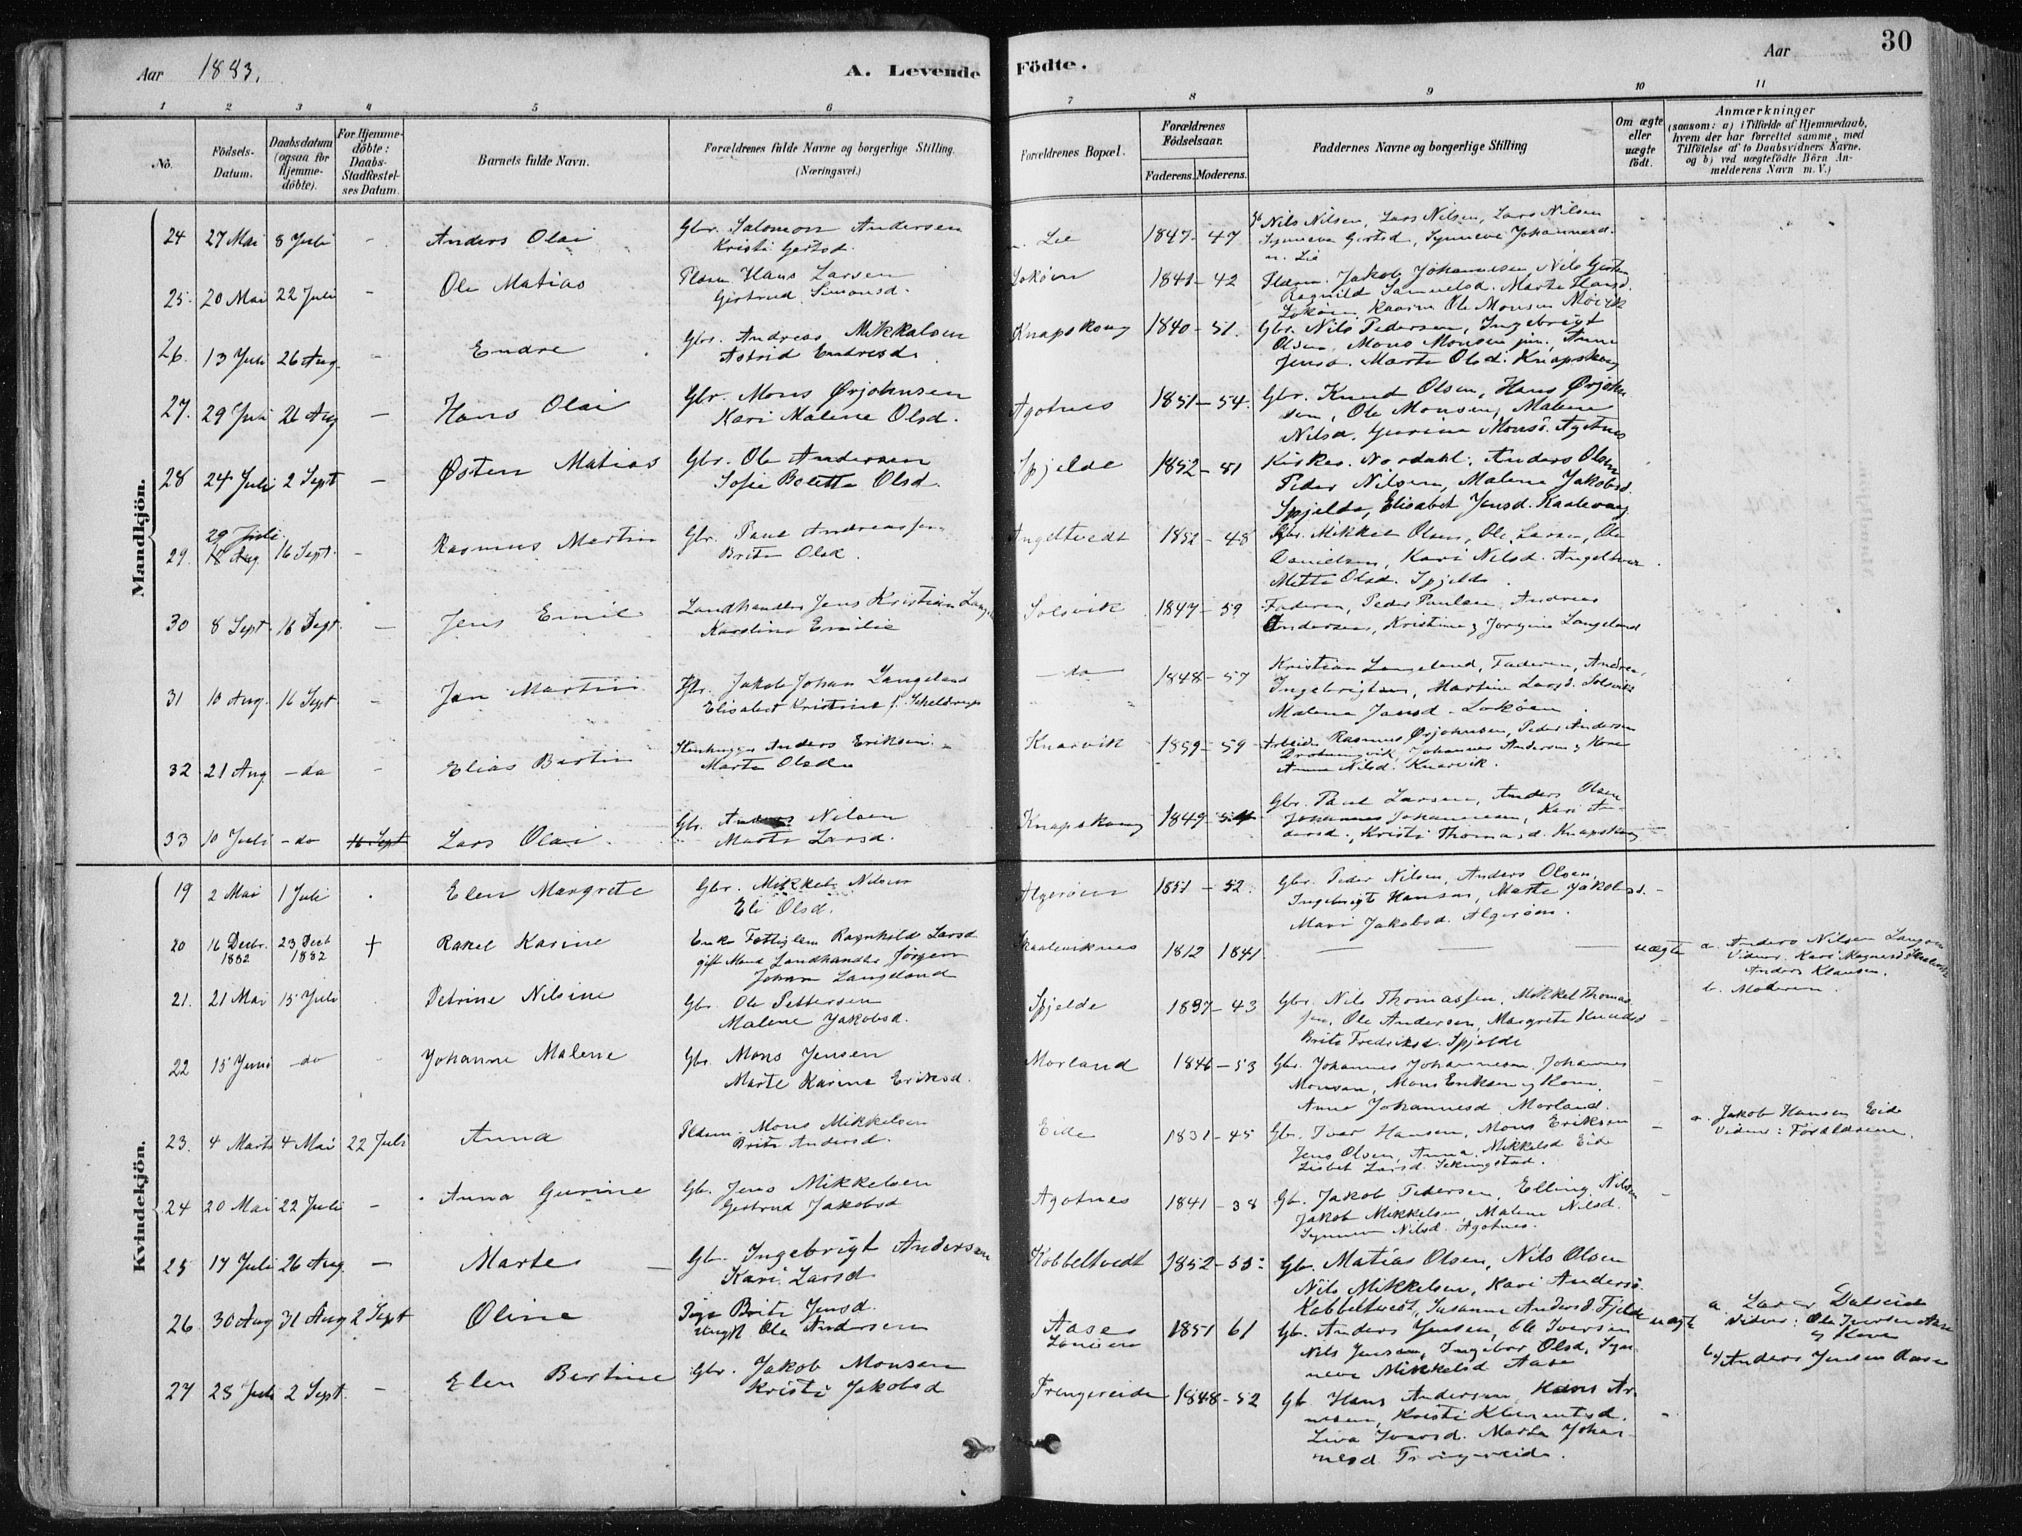 30
Aar 1883.
A. Levende Födte.
Aar
1 2 3 4 5 6 7 8 9 10 11
No.
Födsels-
Datum.
Daabsdatum
(ogsaa for
Hjemme-
döbte).
For Hjemme-
döbte:
Daabs-
Stadfæstel-
ses Datum.
Barnets fulde Navn.
Forældrenes fulde Navne og borgerlige Stilling.
(Næringsvei.)
Forældrenes Bopæl.
Forældrenes
Födselsaar.
Faderens. Moderens.
Faddernes Navne og borgerlige Stilling
Om ægte
eller
uægte
födt.
Anmærkninger
(saasom: a) i Tilfælde af Hjemmedaab,
hvem der har forrettet samme, med
Tilföielse af to Daabsvidners Navne.
og b) ved uægtefödte Börn An-
melderens Navn m. V.)
Mandkjön.
24 27 Mai 8 Juli - Anders Olai
Gbr. Salomon Andersen
Kristi Gertsd.
Lie 1847-47
Nils Nilsen, Lars Nilsen, Lars Nilsen
Synneva Gertsd, Synneve Johannesd.
Lie
25. 20 Mai 22 Juli - Ole Matias
Hans Larsen
Gertrud Simonsd.
Lokøen 1841-42
Jakob Johannesen, Nils Gertsen
Ragnild Samuelsd. Marte Hansd.
Lokøen, Ole Monsen
26. 13 Juli 26 Aug. - Endre
Gbr. Andreas Mikkelsen
Astrid Endresd.
Knapskoug 1840-51.
Gbr. Nils Pedersen, Ingebrigt
Olsen, Mons Monsen jun, Anne
Jensd. Marte Olsd. Knapskoug
27. 29 Juli 26 Aug - Hans Olai
Gbr. Mons Ørjohnsen
Kari Malene Olsd.
Agotnes 1851-54.
Gbr. Knud Olsen, Hans Ørjohn
sen, Ole Monsen, Malene
Nilsd. Gurine Monsd. Agotnes
28 24 Juli 2 Sept - Østen Matias
Gbr. Ole Andersen
Sofie Bolette Olsd.
Spjelde 1852-51
Kirkes. Nordahl, Anders Olsen
Peder Nilsen, Malene Jakobsd.
Spjelde, Elisabet Jensd.
29 Juli
29. 18 Aug 16 Sept. - Rasmus Martin
Gbr. Paul Andreassen
Brite Olsd.
Angeltvedt 1852-48
Gbr. Mikkel Olsen, Ole Larsen, Ole
Danielsen, Kari Nilsd. Angeltvedt
Mette Olsd. Spjelde.
30 8 Sept 16 Sept. - Jens Emil
Landhandler Jens Kristian
Karoline Emilie
Solsvik 1847-59
Faderen, Peder Paulsen, Andreas
Andersen, Kristine og Jørgine Langeland
31 10 Aug. 16 Sept - Jan Martin
Gbr. Jakob Johan Langeland
Elisabet Kristine f. Scheldrup
- do 1848-57
Kristian Langeland, Faderen,
Ingebrigtsen, Martine Larsd. Solsvik
Malena Jansd. Lokøen
32 21 Aug - do - Elias Bertin
Anders Eriksen
Marta Olsd.
Knarvik 1859-59
Arbeider Rasmus Ørjohnsen, Peder Andersen
Johannes Andersen og Kone
Anna Nilsd. Knarvik.
33 10 Juli - do 16 Sept Lars Olai
Gbr. Anders Nilsen
Marte Larsd.
Knapskoug 1849-54
Gbr. Paul Larsen, Anders Olsen
Johannes Johannesen, Kari An-
dersd., Kristi Thomasd. Knapskoug
Kvindekjön.
19 2 Mai 1 Juli Elen Margrete
Gbr. Mikkel Nilsen
Eli Olsd.
Algerøen 1851-52.
Gbr. Peder Nilsen, Anders Olsen,
Ingebrigt Hansen, Marte Jakobsd.
Mari Jakobsd. Algerøen.
20 16 Decbr. 1882 23 Decb 1882 + Rakel Karine
Enke Fattiglem Ragnhilde Larsd
gift Mand Landhandler Jörgen
Johan Langeland
1812 1841
uægte
a. Anders Nilsen
Vidner: Kari Magnesd
Anders Klausen.
b. Moderen.
21. 21 Mai 15 Juli Petrine Nilsine
Gbr. Ole Pettersen
Malene Jakobsd.
Spjelde 1837-43
Gbr. Nils Thomassen, Mikkel Thomas
sen, Ole Andersen, Margrete Knudsd
Brite Fredriksd. Spjelde
22 15 Juni - do Johanne Malene
Gbr. Mons Jensen
Marte Karine Eriksd.
Morland 1846-53
Gbr. Johannes Johannesen, Johannes
Monsen, Mons Eriksen og Kone,
Anne Johannesd. Morland.
23. 4 Marts 4 Mai 22 Juli Anna
Mons Mikkelsen
Brite Andersd.
Eide 1831-45
Gbr. Ivar Hansen, Mons Eriksen
Jens Olsen, Anna Mikkelsd Eide
Lisbet Larsd. Sekingstad.
a. Jakob Hansen Eide
Vidner: Forældrene.
24 20 Mai 22 Juli - Anna Gurine
Gb. Jens Mikkelsen
Gertrud Jakobsd
Agotnes 1841-38
Gb. Jakob Pedersen, Elling Nilsen
Jakob Mikkelsen, Malene Nilsd.
Nilsd. Agotnes.
25 17 Juli 26 Aug. - Marte
Gb. Ingebrigt Andersen
Kari Larsd
Kobbeltvedt 1852-53
Gb. Matias Olsen, Nils Olsen
Nils Mikkelsen, Kari Andersd.
Kobbeltvedt, Susanne Andersd. Fjelde
26 30 Aug 31 Aug 2 Sept Oline
Pige Brite Jensd.
Ungk Ole Andersen
Aase 1851 61
Gb. Anders Jensen, Ole Iversen
Nils Jensen, Ingebor Olsd, Syn-
neve Mikkelsd Aase
uægte
a. Lars Dalseid
Vidner: Ole Iversen Aase
og Kone
b. Anders Jensen Aase
27 28 Juli 2 Sept. - Elen Bertine
Gbr. Jakob Monsen
Kristi Jakobsd
1848-52
Gb. Hans Andersen, Hans Ar-
nesen, Kristi Klementsd.
Liva Ivarsd. Marta Johan-
nesd